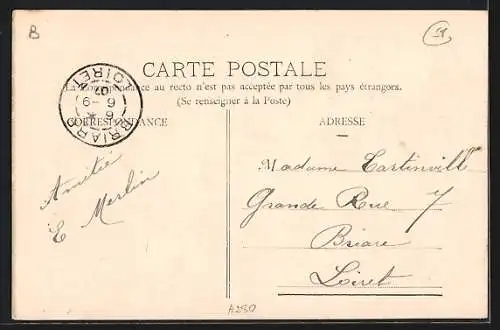 B
51
CARTE POSTALE
La Correspondance au recto n'est pas acceptée par tous les pays étrangers.
(Se renseigner à la Poste)
CORRESPONDANCE
ADRESSE
BRIARE
LOIRET
6 - 9
Amitié
E Merlin
Madame Tartinville
Grande Rue 7
Briare
Loiret
A280